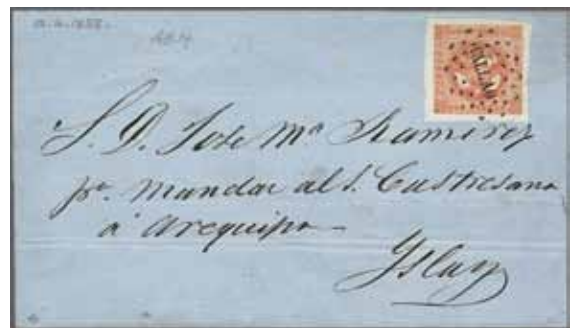 CALLAO
S. D. Jose Mª Ramirez
pª. mandar al S. Castresana
á Arequipa
Yslay